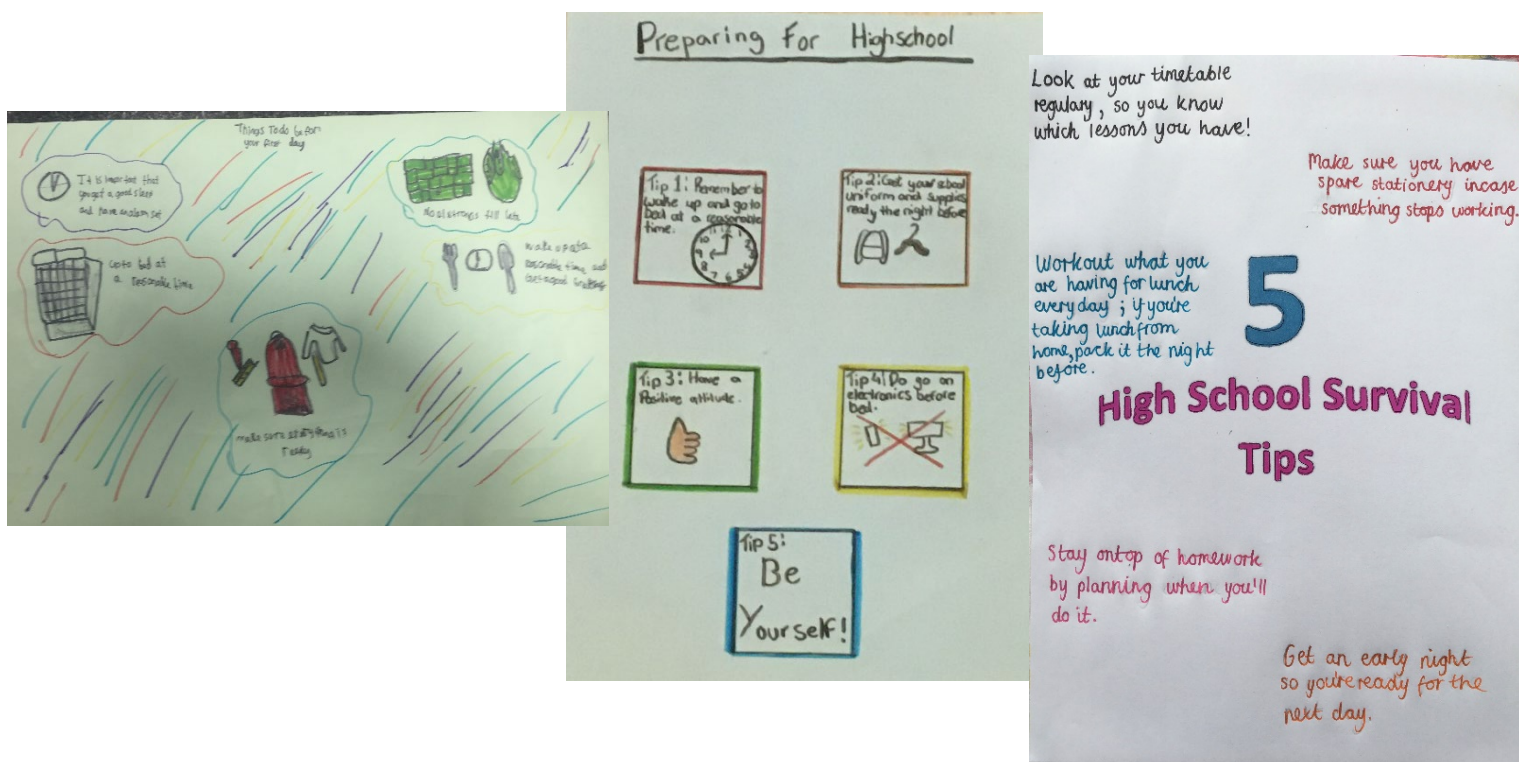 Things To do before
your first day
It is important that
you get a good sleep
and have an alarm set
Go to bed at
a resonable time
No allstrings till late
wake up at a
resonable time and
make sure everything is
ready
Preparing For Highschool
Tip 1: Remember to
wake up and go to
bed at a reasonable
time.
Tip 2: Get your school
uniform and supplies
ready the night before
Tip 3: Have a
Positive attitude.
Tip 4: Do go on
electronics before
bed.
Tip 5:
Be
Yourself!
Look at your timetable
regulary, so you know
which lessons you have!
Make sure you have
spare stationery incase
something stops working.
Workout what you
are having for lunch
everyday ; if you're
taking lunch from
home, pack it the night
before.
5
High School Survival
Tips
Stay ontop of homework
by planning when you'll
do it.
Get an early night
so you're ready for the
next day.